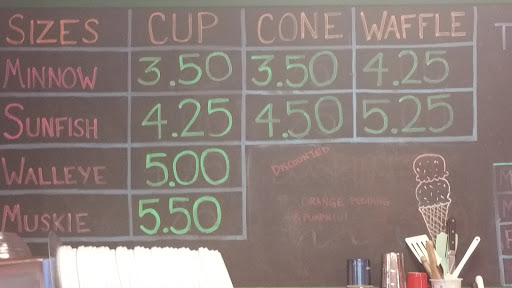 SIZES CUP CONE WAFFLE
MINNOW 3.50 3.50 4.25
SUNFISH 4.25 4.50 5.25
WALLEYE 5.00
MUSKIE 5.50
DISCOUNTED
ORANGE